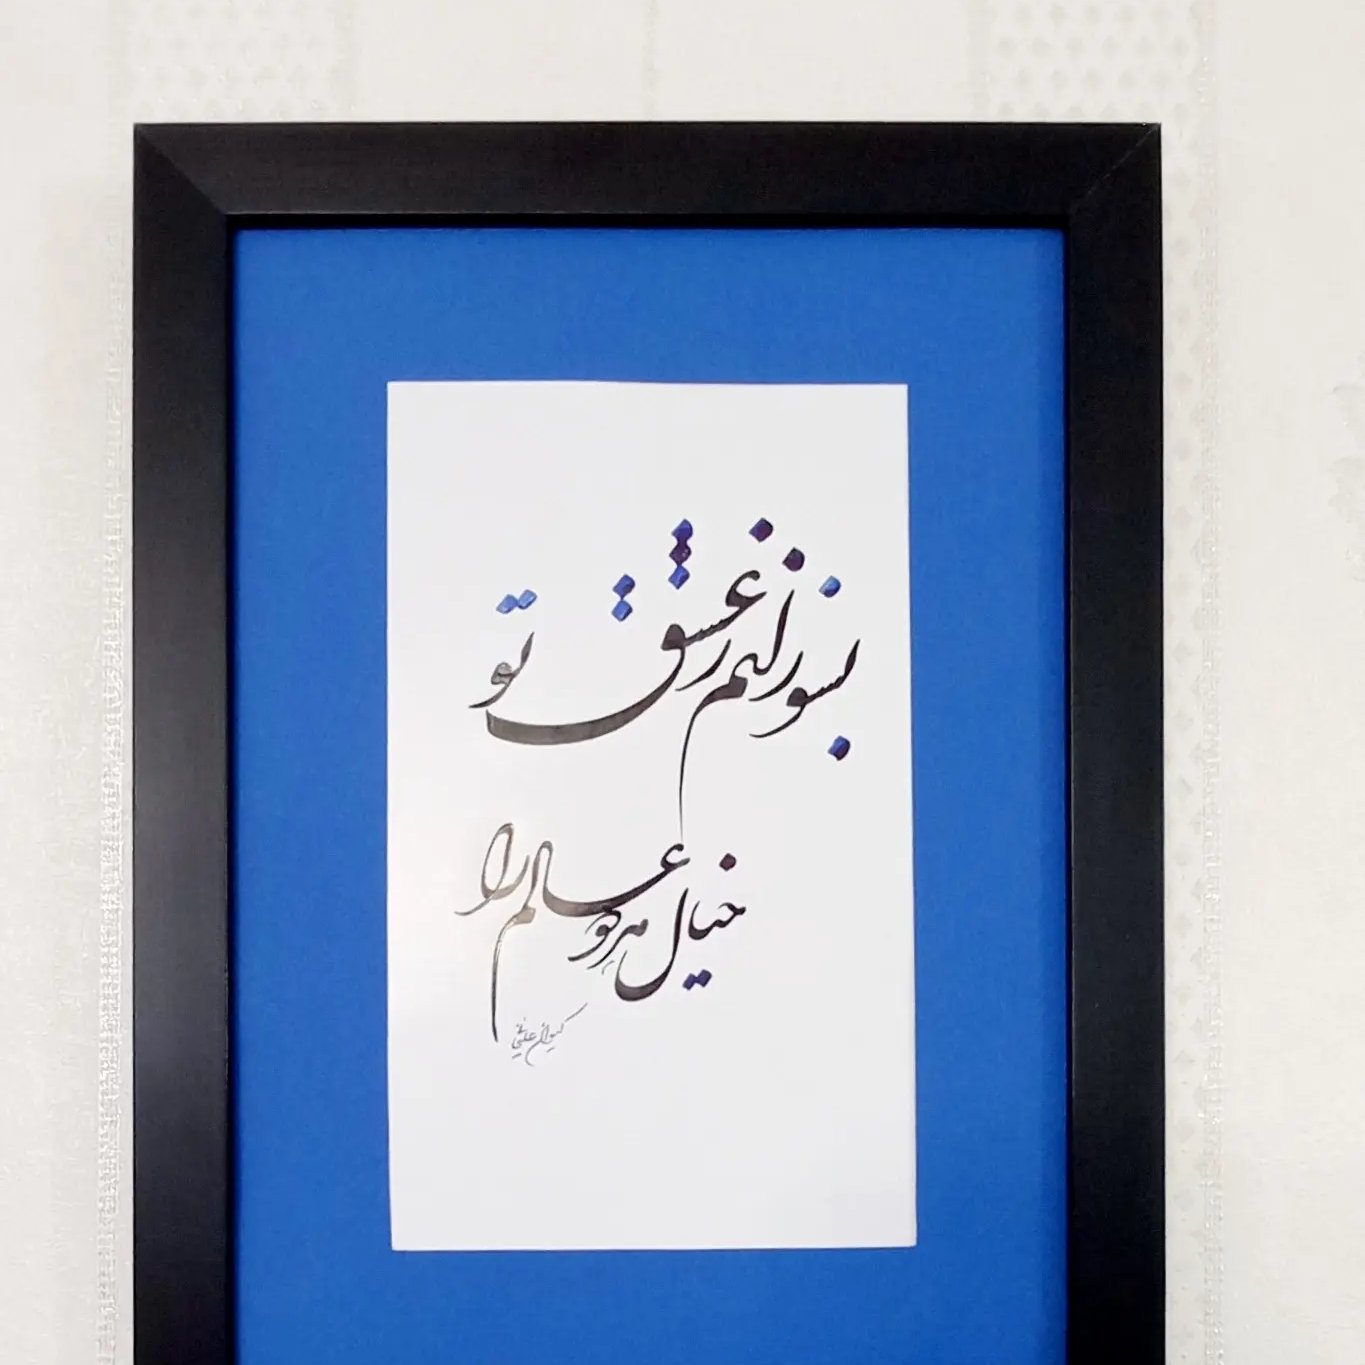 بسوزانم ز عشق تو
خیال هر دو عالم را
کیوان